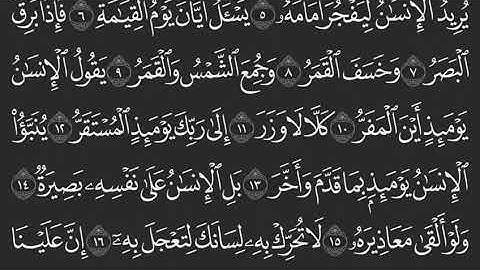 يُرِيدُ الْإِنسَانُ لِيَفْجُرَ أَمَامَهُۥ ۝٥ يَسْـَٔلُ أَيَّانَ يَوْمُ الْقِيَٰمَةِ ۝٦ فَإِذَا بَرِقَ
الْبَصَرُ ۝٧ وَخَسَفَ الْقَمَرُ ۝٨ وَجُمِعَ الشَّمْسُ وَالْقَمَرُ ۝٩ يَقُولُ الْإِنسَانُ
يَوْمَئِذٍ أَيْنَ الْمَفَرُّ ۝١٠ كَلَّا لَا وَزَرَ ۝١١ إِلَىٰ رَبِّكَ يَوْمَئِذٍ الْمُسْتَقَرُّ ۝١٢ يُنَبَّؤُا
الْإِنسَانُ يَوْمَئِذٍۭ بِمَا قَدَّمَ وَأَخَّرَ ۝١٣ بَلِ الْإِنسَانُ عَلَىٰ نَفْسِهِۦ بَصِيرَةٌ ۝١٤
وَلَوْ أَلْقَىٰ مَعَاذِيرَهُۥ ۝١٥ لَا تُحَرِّكْ بِهِۦ لِسَانَكَ لِتَعْجَلَ بِهِۦٓ ۝١٦ إِنَّ عَلَيْنَا